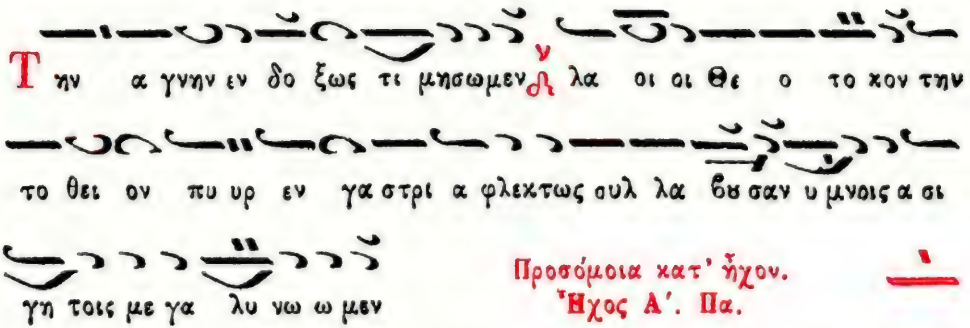 Την α γνην εν δο ξως τι μησωμεν λα οι οι Θε ο το κον την
το θει ον πυ υρ εν γα στρι α φλεκτως συλ λα βου σαν υ μνοις α σι
γη τοις με γα λυ νω ω μεν
Προσόμοια κατ' ἦχον.
Ἦχος Α'. Πα.